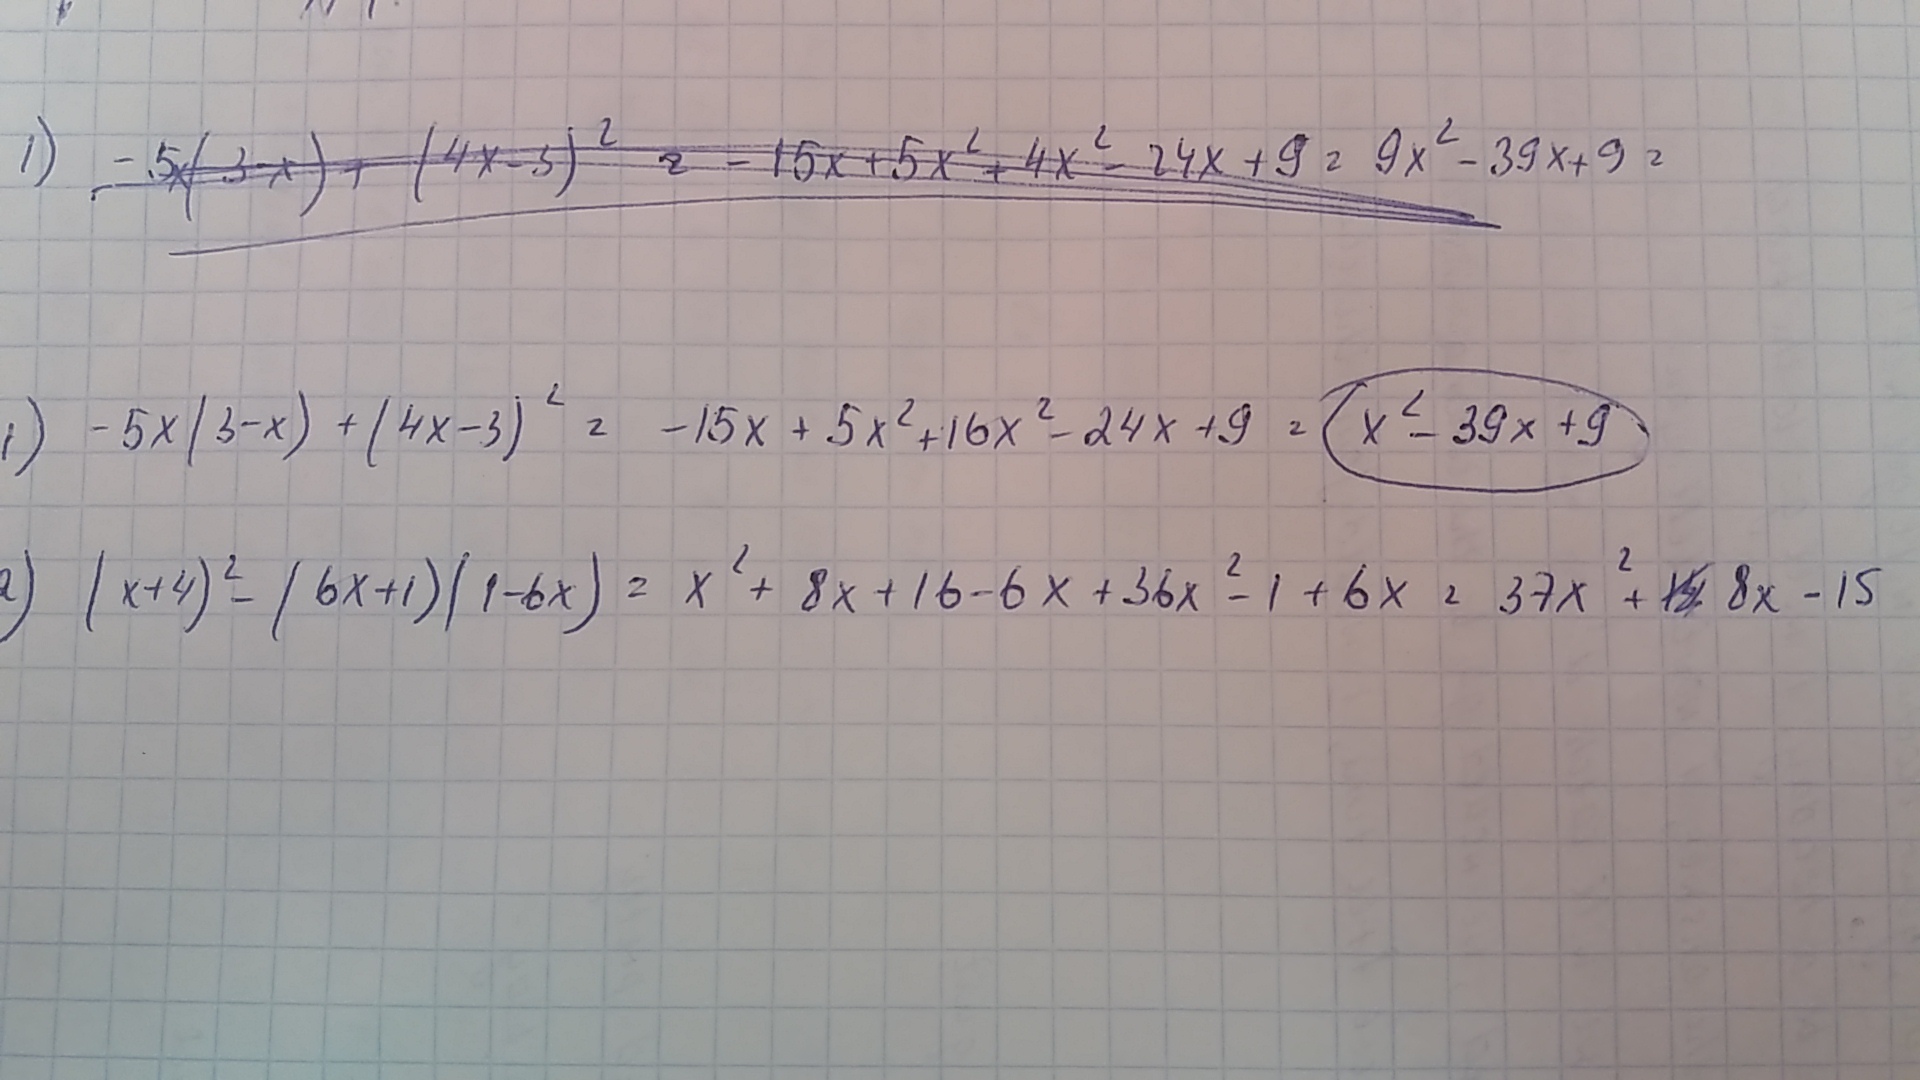 1) -5x(3-x)+(4x-3)² = -15x+5x²+4x²-24x+9 = 9x²-39x+9 =
1) -5x(3-x)+(4x-3)² = -15x+5x²+16x²-24x+9 = x²-39x+9
2) (x+4)²-(6x+1)(1-6x) = x²+8x+16-6x+36x²-1+6x = 37x²+8x-15